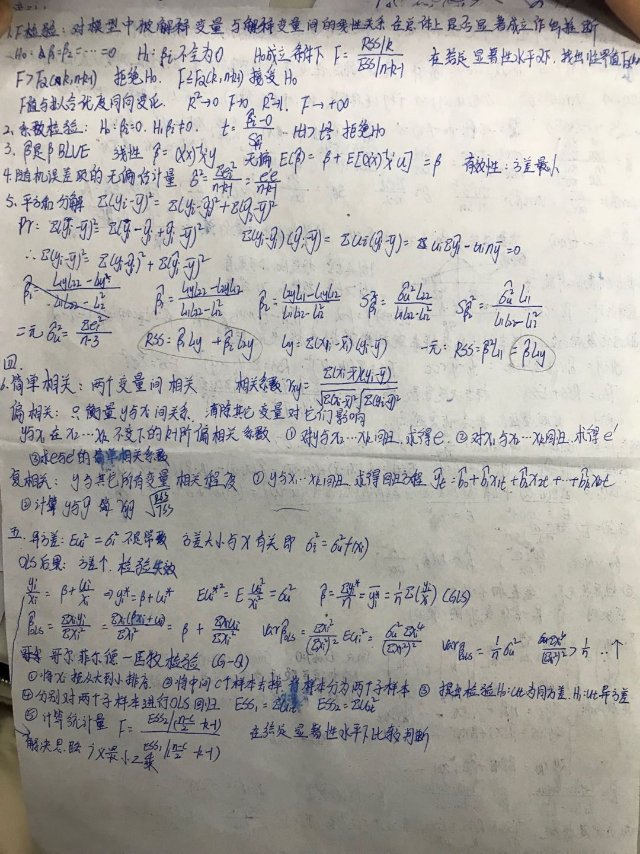 1. F检验：对模型中被解释变量与解释变量间的线性关系在总体上是否显著成立作出推断
H₀: β₁=β₂=…=0  H₁: βi不全为0  H₀成立条件下 F = (RSS/k)/(ESS/n-k-1)  在给定显著性水平α下，找出临界值Fα
F>Fα(k, n-k-1) 拒绝H₀. F≤Fα(k, n-k-1) 接受H₀
F值与拟合优度同向变化. R²→0 F→0, R²→1, F→+∞
2. 系数检验: H₀: βi=0. H₁ βi≠0. t = (β̂i-0)/Sβ̂i 拒绝H₀
3. β̂是β BLUE 线性 β̂=(X'X)⁻¹X'y 无偏 E(β̂) = β + E[(X'X)⁻¹X'u] = β 有效性：方差最小
4. 随机误差项的无偏估计量 σ̂² = Σei²/(n-k-1) = e'e/(n-k-1)
5. 平方和分解 Σ(yi-ȳ)² = Σ(yi-ŷi)² + Σ(ŷi-ȳ)²
Pr: Σ(yi-ȳ)² = Σ(yi-ŷi+ŷi-ȳ)²  Σ(yi-ŷi)(ŷi-ȳ) = Σui(ŷi-ȳ) = Σuiŷi - Σuiȳ = 0
∴ Σ(yi-ȳ)² = Σ(yi-ŷi)² + Σ(ŷi-ȳ)²
β̂₁ = (L1yL22-L2yL12)/(L11L22-L12²)  β̂₂ = (L2yL11-L1yL12)/(L11L22-L12²)  S²β̂₁ = σ̂u²L22/(L11L22-L12²)  S²β̂₂ = σ̂u²L11/(L11L22-L12²)
二元 σ̂u² = Σei²/(n-3)  RSS = β̂₁L1y + β̂₂L2y  Ly = Σ(xi-x̄)(yi-ȳ)  一元: RSS = β̂²L11 = β̂Ly
四.
6. 简单相关：两个变量间相关 相关系数 rxy = Σ(xi-x̄)(yi-ȳ)/√Σ(xi-x̄)²√Σ(yi-ȳ)²
偏相关：只衡量y与xi间关系，消除其它变量对它们影响
y与x₁在x₂…xk不变下的k-1阶偏相关系数 ①对y与x₂…xk回归，求得e. ②对x₁与x₂…xk回归，求得e'
③求e与e'的简单相关系数
复相关：y与其他所有变量相关程度 ①y与x₁…xk回归，求得回归方程 ŷt = b̂₀+b̂₁x1t+b̂₂x2t+…+b̂kxkt
②计算y与ŷ 简 ryŷ √RSS/TSS
五. 异方差: Eui²=σi² 不是常数 方差大小与X有关 即 σi²=σu²f(xi)
OLS后果：方差↑. 检验失效
yi/xi = β + ui/xi ⇒ yi*=β+ui*  Eui*² = E ui²/xi² = σu²  β̂ = Σyi*/n = ȳi* = 1/n Σ(yi/xi) (GLS)
β̂OLS = Σxiyi/Σxi² = Σxi(βxi+ui)/Σxi² = β + Σxiui/Σxi²  Varβ̂OLS = Σxi²/(Σxi²)² Eui² = σu²Σxi⁴/(Σxi²)²  Varβ̂GLS = 1/n σu²  Σxi⁴/(Σxi²)² > 1/n ∴↑
哥尔菲尔德—匡特检验 (G-Q)
①将xi按从大到小排序. ②将中间C个样本去掉 样本分为两个子样本 ③提出检验H₀: ut为同方差. H₁: ut异方差
④分别对两个子样本进行OLS回归 ESS₁=Σe1i² ESS₂=Σe2i²
⑤计算统计量 F = ESS₂/((n-c)/2-k-1) / ESS₁/((n-c)/2-k-1) 在给定显著性水平下比较判断
解决思路 广义最小二乘